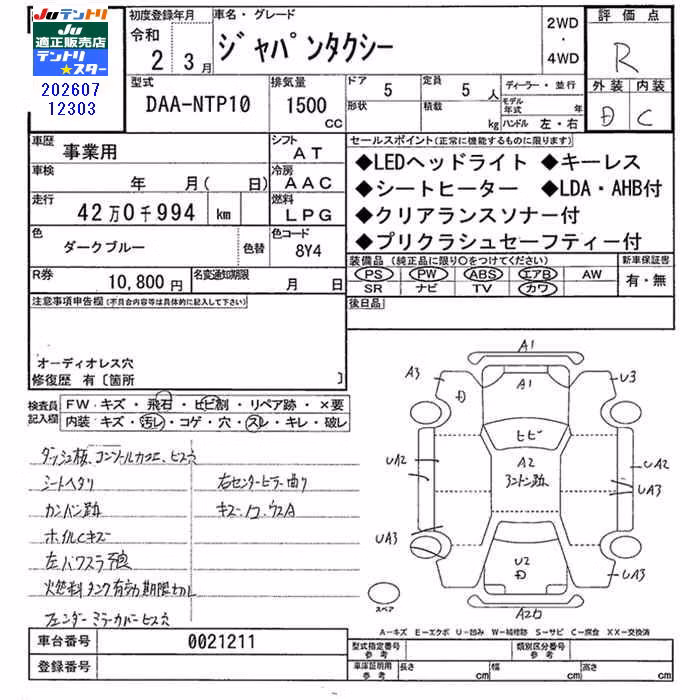 Juテントリ
Ju
適正販売店
テントリ
★スター
202607
12303
初度登録年月
令和
2 3月
車名・グレード
ジャパンタクシー
2WD
・
4WD
評価点
R
外装 内装
D C
型式
DAA-NTP10
排気量
1500
CC
ドア
5
形状
定員
5 人
積載
kg
ディーラー・並行
モデル年式 年
ハンドル 左・右
車歴
事業用
シフト
AT
車検
年 月( 日)
冷房
AAC
走行
42万0千994 km
燃料
LPG
色
ダークブルー
色替
色コード
8Y4
R券
10,800円
名変通知期限
月 日
セールスポイント(正常に機能するものに限ります)
◆LEDヘッドライト ◆キーレス
◆シートヒーター ◆LDA・AHB付
◆クリアランスソナー付
◆プリクラシュセーフティー付
装備品 (純正品に限り○をつけてください)
新車保証書
PS PW ABS エアB AW
SR ナビ TV カワ
有・無
後日品
注意事項申告欄(不具合内容等は具体的に記入して下さい)
オーディオレス穴
修復歴 有〔箇所 〕
検査員
記入欄
FW キズ・飛石・ヒビ割・リペア跡・×要
内装 キズ・汚レ・コゲ・穴・スレ・キレ・破レ
ダッシュ板、コンソールカケ、ビス穴
シートヘタリ
右センターピラー曲り
カンバン跡
キズ、凹、ウスA
ホイルCキズ
左パワスラ予危
燃料タンク有効期限切レ
フェンダーミラーカバービス穴
A1
A3
U3
D
A1
ヒビ
A2
アンドン跡
UA2
UA2
UA3
UA3
U2
D
UA3
A2D
スペア
A－キズ E－エクボ U－凹み W－補修跡 S－サビ C－腐食 XX－交換済
車台番号
0021211
登録番号
型式指定番号
参考
類別区分番号
参考
車庫証明用
参考
長さ cm
幅 cm
高さ cm